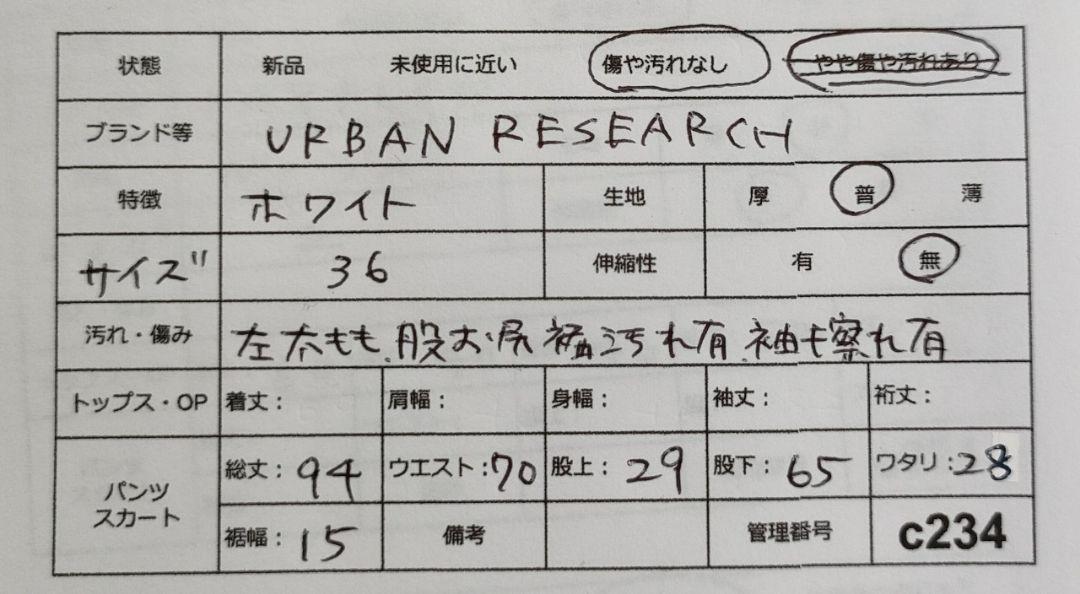 状態 新品 未使用に近い 傷や汚れなし やや傷や汚れあり
ブランド等 URBAN RESEARCH
特徴 ホワイト 生地 厚 普 薄
サイズ 36 伸縮性 有 無
汚れ・傷み 左太もも、股お尻 裾汚れ有、袖擦れ有
トップス・OP 着丈: 肩幅: 身幅: 袖丈: 裄丈:
パンツ スカート 総丈:94 ウエスト:70 股上:29 股下:65 ワタリ:28
裾幅:15 備考 管理番号 c234